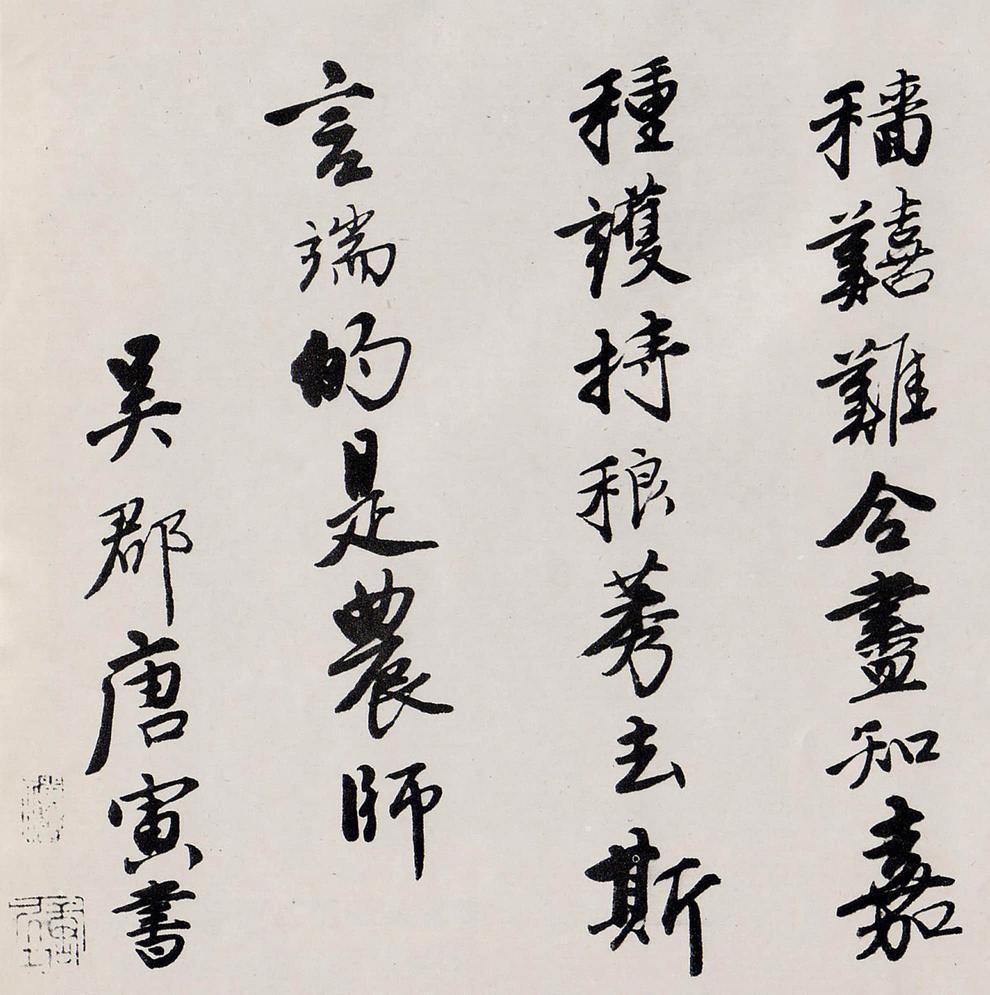 穡囏難合盡知嘉
種護持稂莠去斯
言端的是農師
吳郡唐寅書